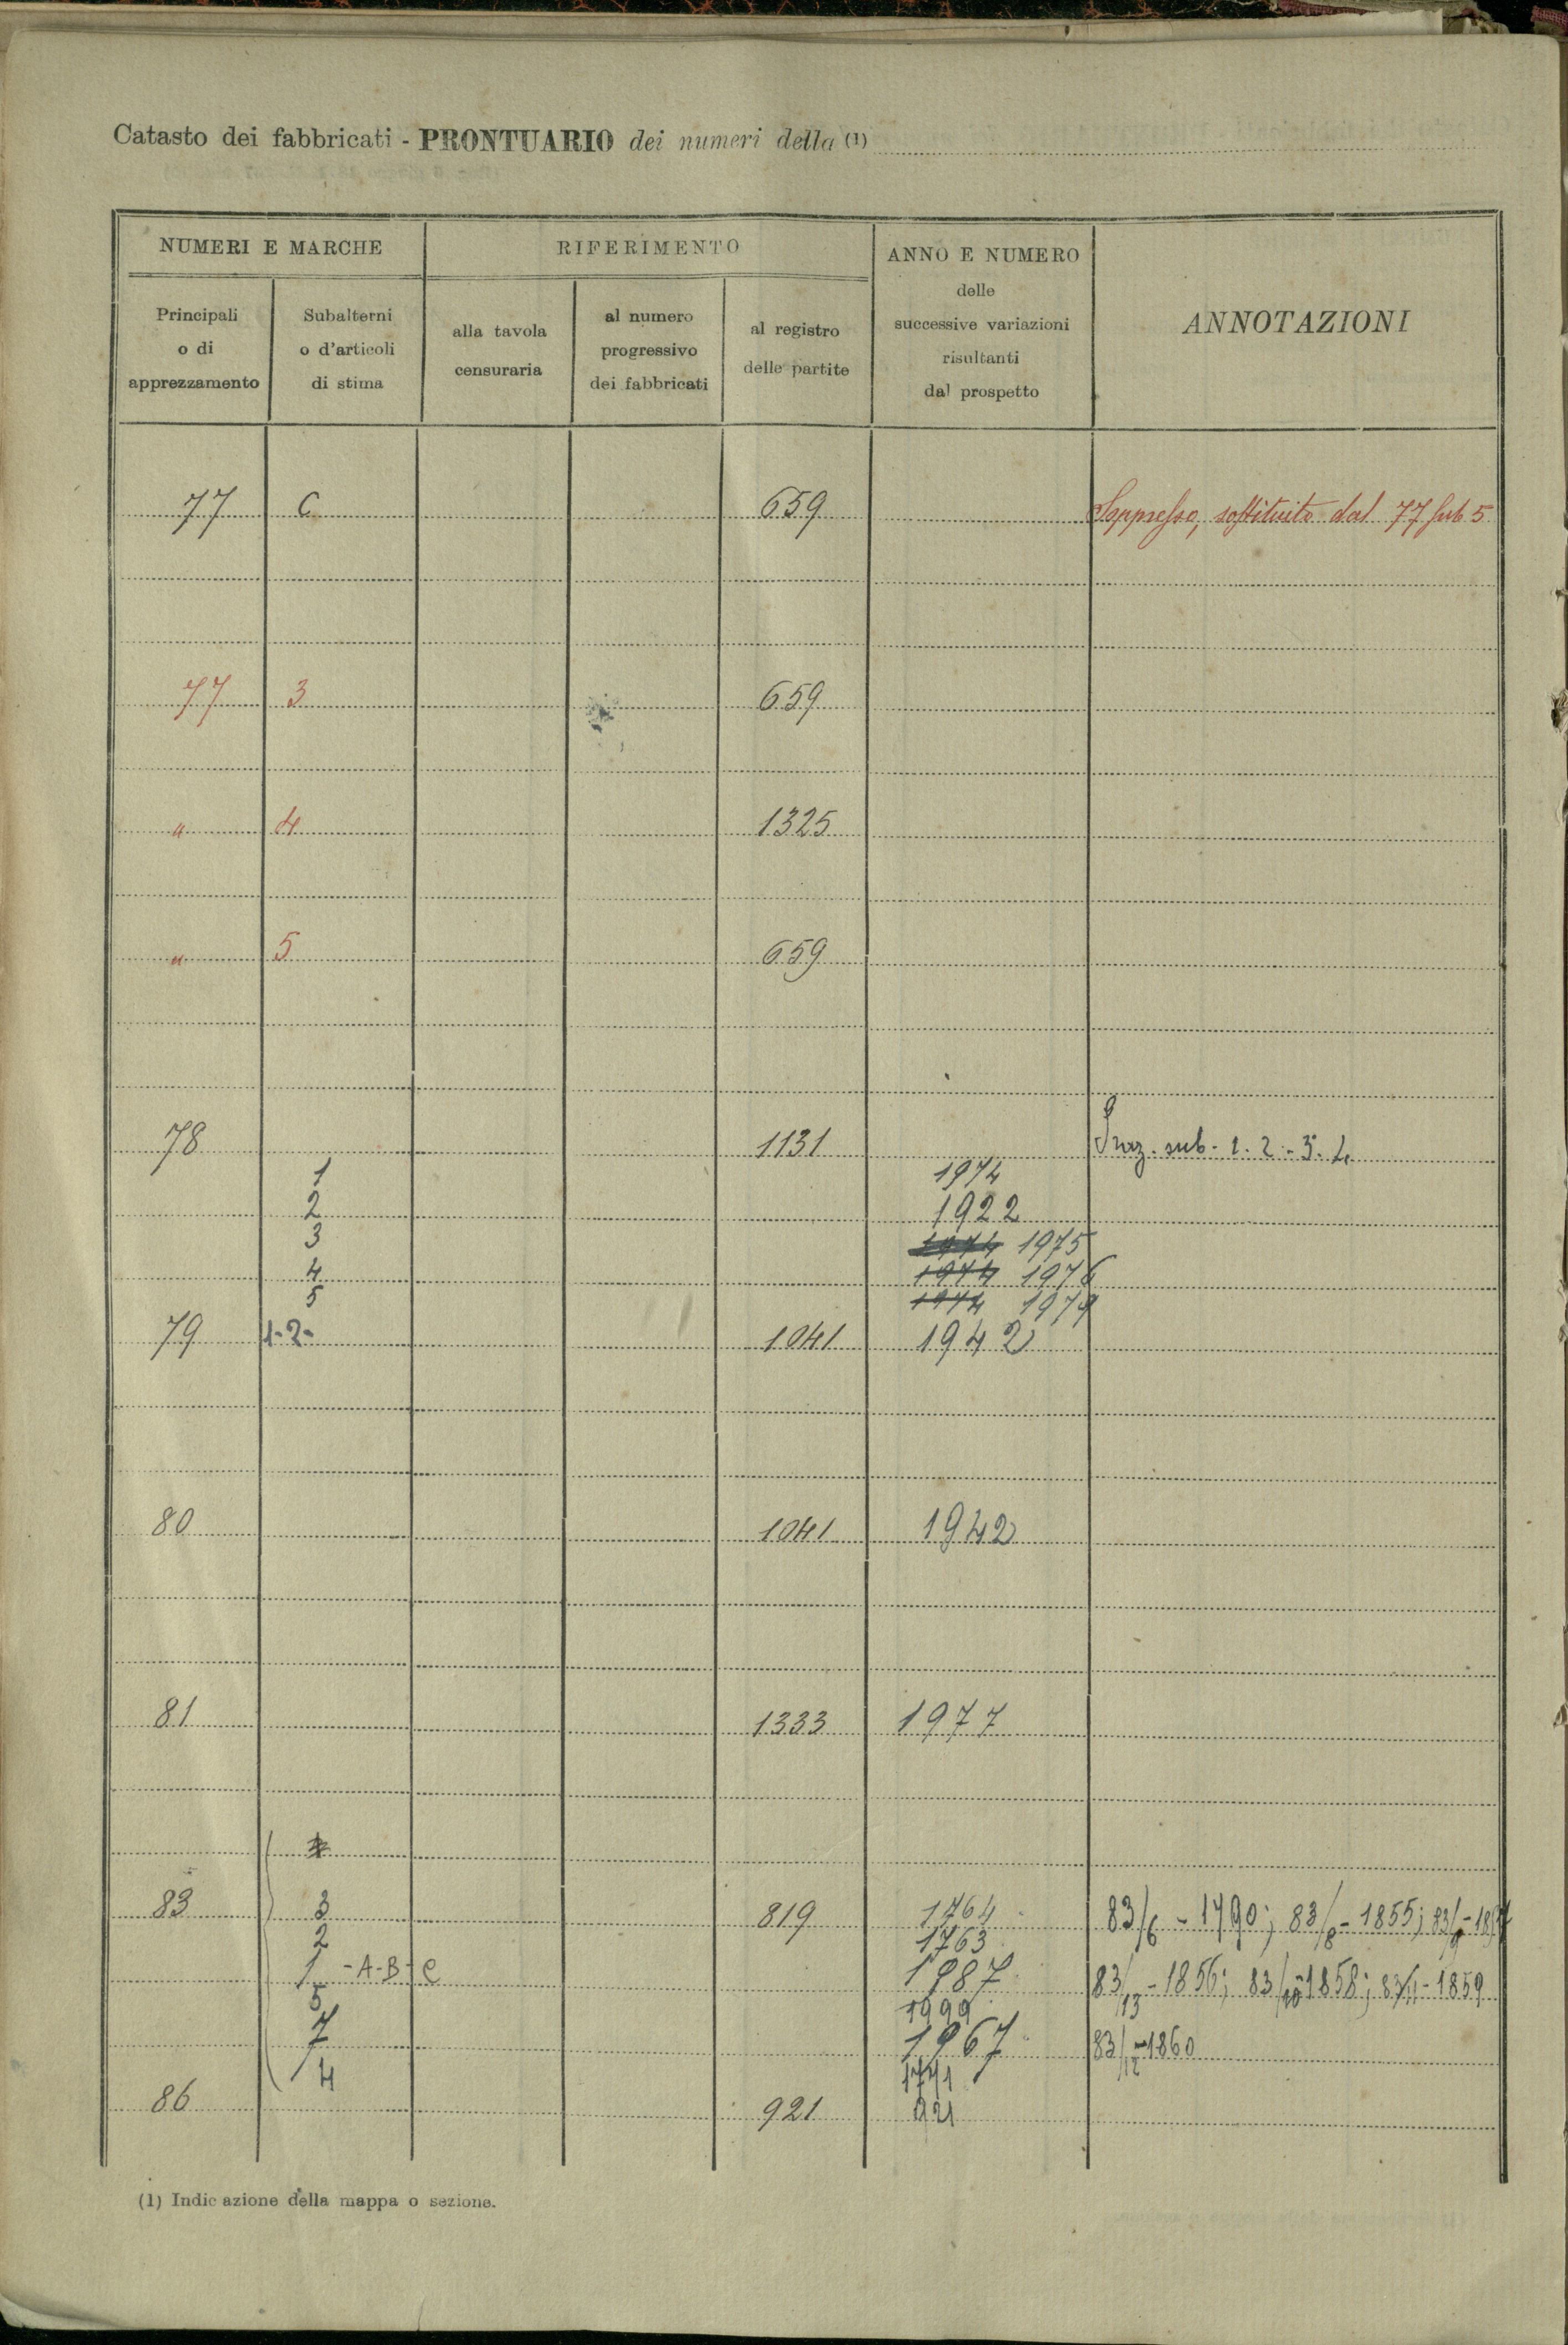 Catasto dei fabbricati - PRONTUARIO dei numeri della (1)
NUMERI E MARCHE
RIFERIMENTO
ANNO E NUMERO
delle
successive variazioni
risultanti
dal prospetto
ANNOTAZIONI
Principali
o di
apprezzamento
Subalterni
o d'articoli
di stima
alla tavola
censuraria
al numero
progressivo
dei fabbricati
al registro
delle partite
77 C 659 Soppresso, sostituito dal 77 sub 5
77 3 659
" 4 1325
" 5 659
78 1131 sub - 1. 2 - 3. 4
1 1974
2 1922
3 1974 1975
4 1974 1976
5 1974 1979
79 1-2- 1041 1942
80 1041 1942
81 1333 1977
83 3 819 1764 83/6 - 1790; 83/8 - 1855; 83/9 -
2 1763
1 - A-B-C 1987 83/13 - 1856; 83/10 - 1858; 83/11 - 1859
5 1999
7 1967 83/12 - 1860
4 1771
86 921 921
(1) Indic azione della mappa o sezione.